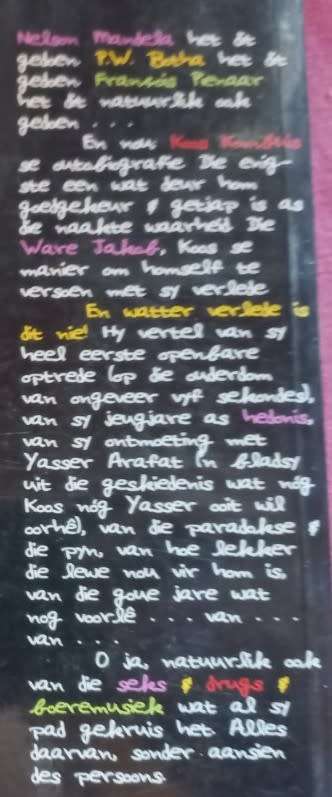 Nelson Mandela het dit
gedoen P.W. Botha het dit
gedoen Francois Pienaar
het dit natuurlik ook
gedoen ...
En nou Koos Kombuis
se outobiografie Die enig-
ste een wat deur hom
goedgekeur & getjap is as
die naakte waarheid Die
Ware Jakob, Koos se
manier om homself te
versoen met sy verlede
En watter verlede is
dit nie! Hy vertel van sy
heel eerste openbare
optrede (op die ouderdom
van ongeveer vyf sekondes),
van sy jeugjare as hedonis,
van sy ontmoeting met
Yasser Arafat ('n bladsy
uit die geskiedenis wat nóg
Koos nóg Yasser ooit wil
oorhê), van die paradokse &
die pyn, van hoe lekker
die lewe nou vir hom is,
van die goue jare wat
nog voorlê ... van ...
van ...
O ja, natuurlik ook
van die seks & drugs &
boeremusiek wat al sy
pad gekruis het Alles
daarvan, sonder aansien
des persoons.